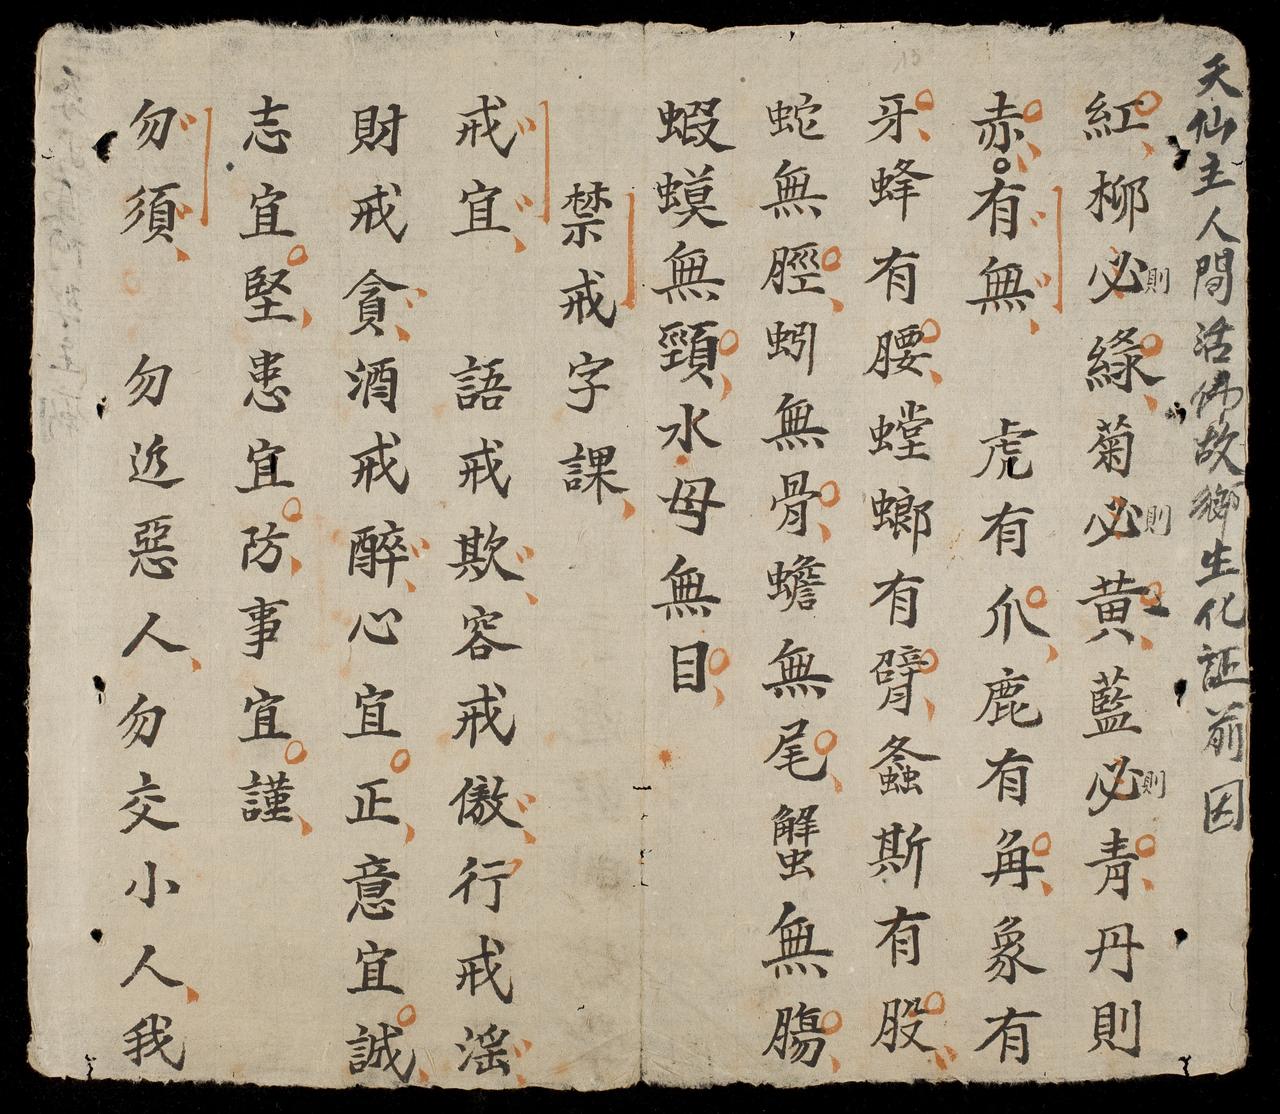 天仙主人間活佛故鄉生化証前因
紅柳必則綠菊必則黃藍必則青丹則
赤有無 虎有爪鹿有角象有
牙蜂有腰螳螂有臂螽斯有股
蛇無脛蚓無骨蟾無尾蟹無腸
蝦蟆無頸水母無目
禁戒字課
戒宜 語戒欺容戒傲行戒淫
財戒貪酒戒醉心宜正意宜誠
志宜堅患宜防事宜謹
勿須 勿近惡人勿交小人我